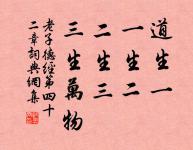 道生一
一生二
二生三
三生萬物
老子德經第四十
二章詞典網集